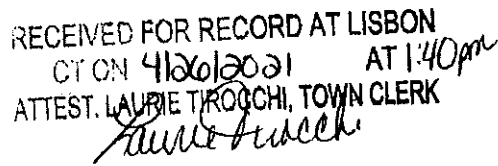 RECEIVED FOR RECORD AT LISBON
CT ON 4/26/2021 AT 1:40pm
ATTEST. LAURIE TIROCCHI, TOWN CLERK
Laurie Tirocchi